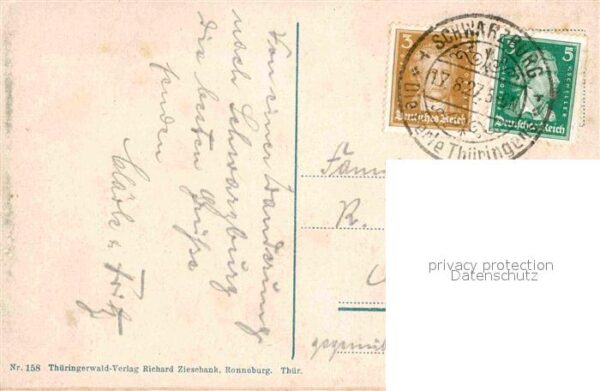 Von einer Wanderung
nach Schwarzburg
die besten Grüße
senden
Fritz
3
Deutsches Reich
5
5
FRIEDRICH v. SCHILLER
Deutsches Reich
SCHWARZBURG
17.8.27
Die Perle Thüringens
Fam
R.
gegenüb
privacy protection
Datenschutz
Nr. 158 Thüringerwald-Verlag Richard Zieschank, Ronneburg. Thür.